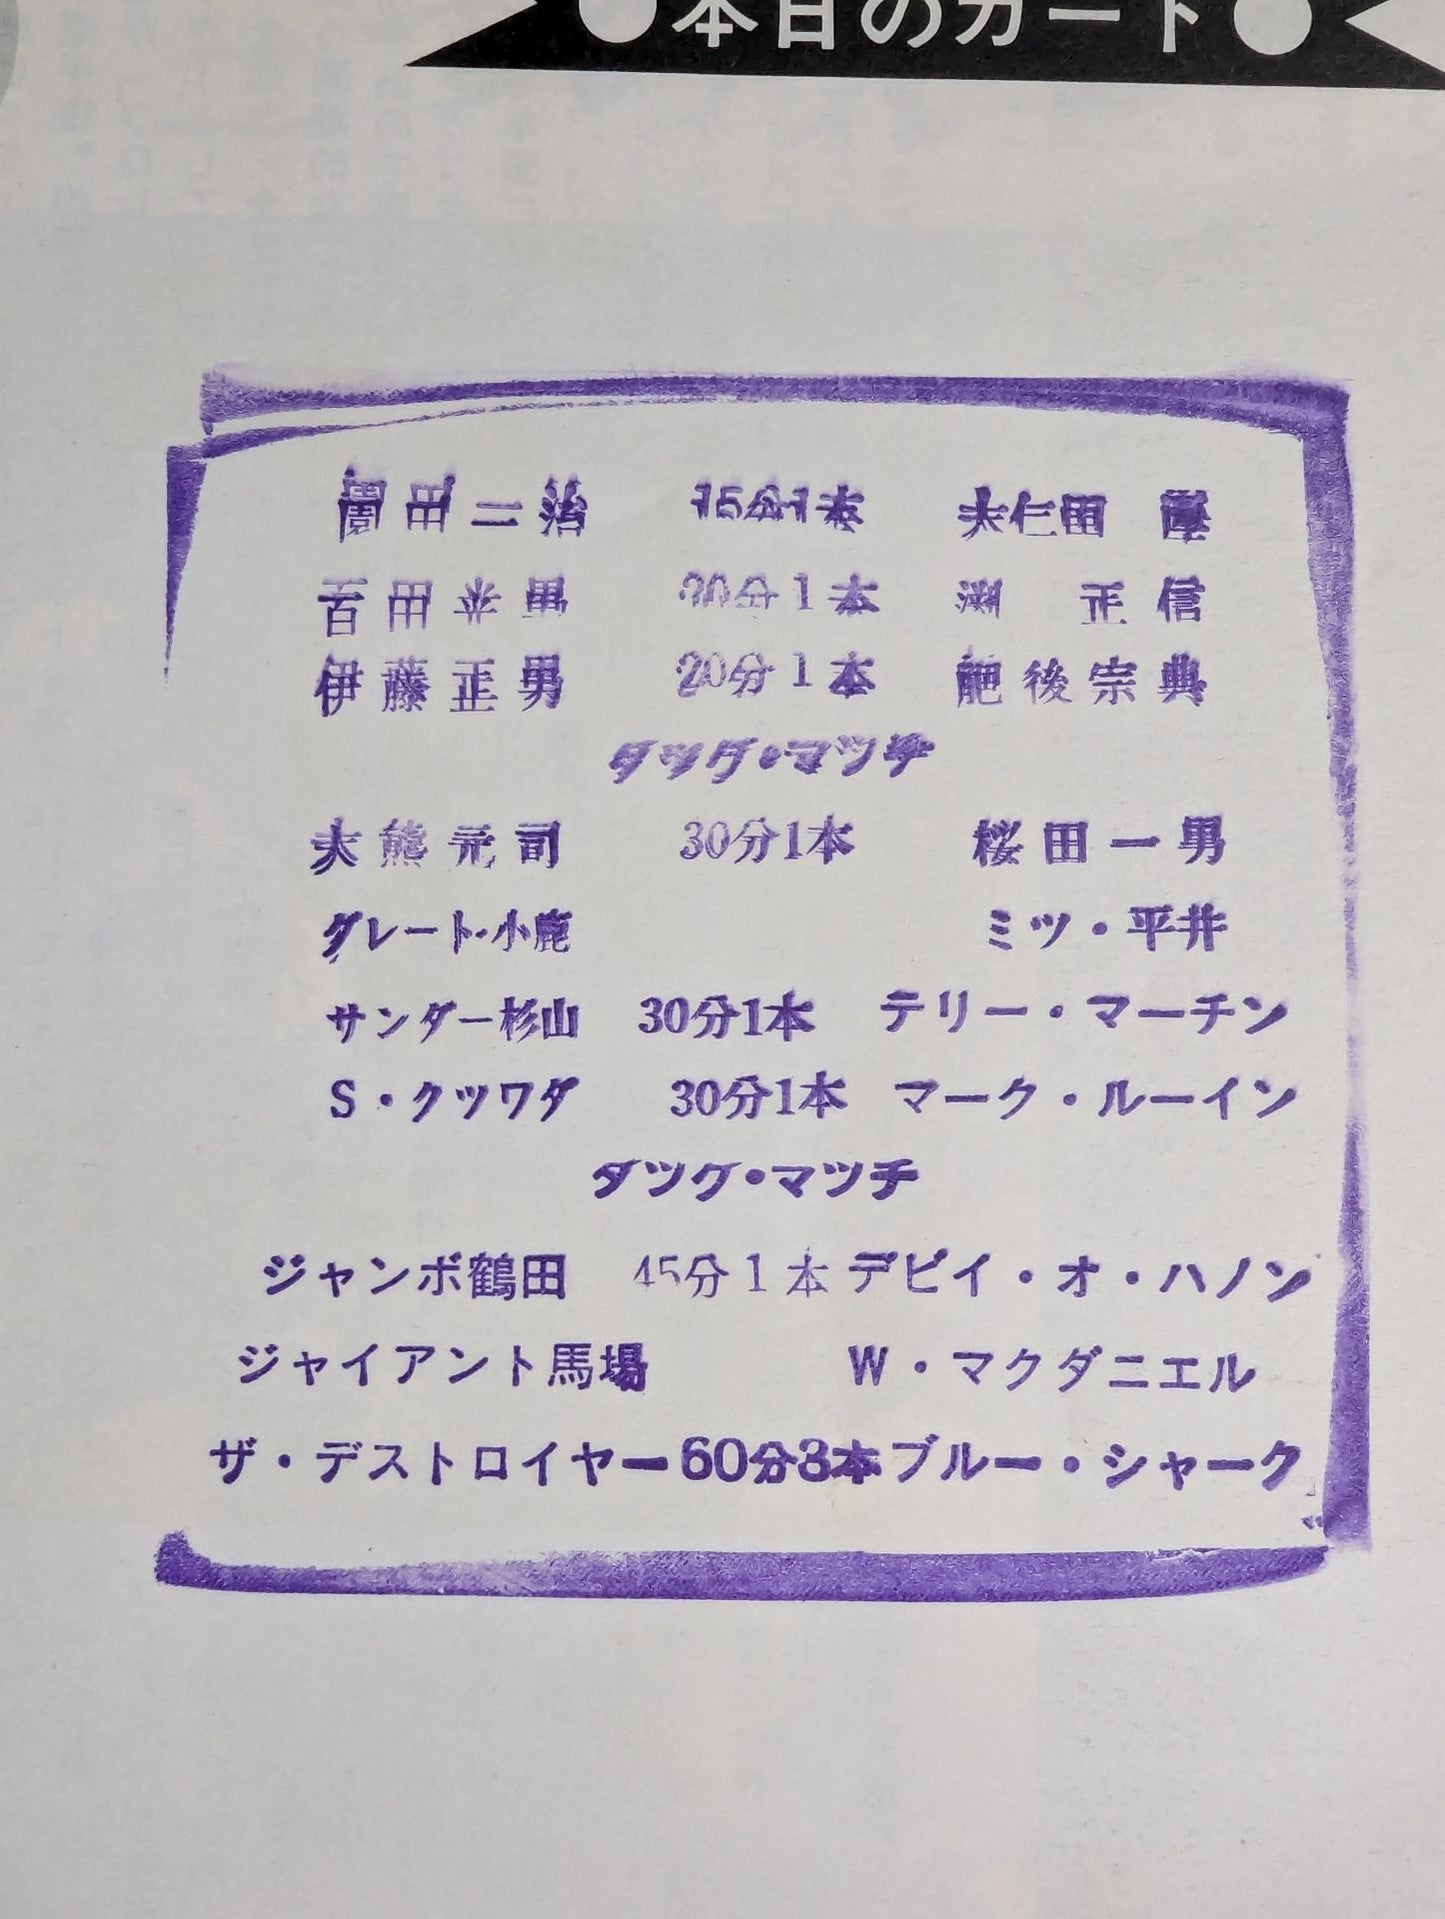 ●本日のカード●
薗田一治 15分1本 大仁田 厚
百田光男 20分1本 渕 正信
伊藤正男 20分1本 肥後宗典
タツグ・マツチ
大熊元司 30分1本 桜田一男
グレート・小鹿 ミツ・平井
サンダー杉山 30分1本 テリー・マーチン
S・クツワダ 30分1本 マーク・ルーイン
タツグ・マツチ
ジャンボ鶴田 45分1本 デビイ・オ・ハノン
ジャイアント馬場 W・マクダニエル
ザ・デストロイヤー 60分3本 ブルー・シャーク